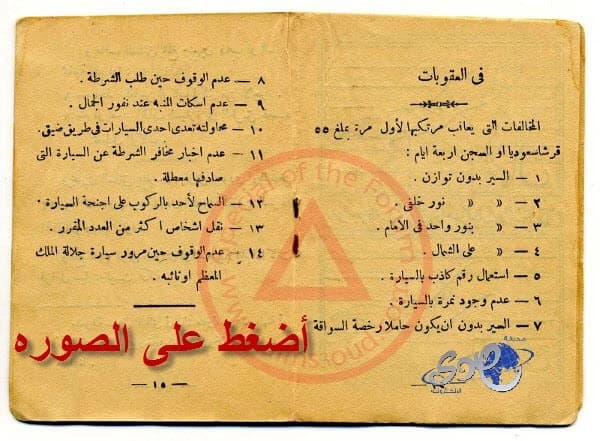 فى العقوبات
المخالفات التى يعاقب مرتكبها لأول مرة بمبلغ ٥٥
قرشا سعوديا او السجن اربعة ايام :
١ — السير بدون توازن .
٢ — « « نور خلفى .
٣ — « بنور واحد فى الامام .
٤ — « على الشمال .
٥ — استعمال رقم كاذب بالسيارة .
٦ — عدم وجود نمرة بالسيارة .
٧ — السير بدون ان يكون حاملا رخصة السواقة
٨ — عدم الوقوف حين طلب الشرطة .
٩ — عدم اسكات المنبه عند نفور الجمال .
١٠ — محاولته تعدى احدى السيارات فى طريق ضيق.
١١ — عدم اخبار مخافر الشرطة عن السيارة التى
صادفها معطلة .
١٢ — السماح لأحد بالركوب على اجنحة السيارة .
١٣ — نقل اشخاص اكثر من العدد المقرر .
١٤ — عدم الوقوف حين مرور سيارة جلالة الملك
المعظم او نائبه .
— ١٥ —
أضغط على الصوره
Special of the Forum
صحيفة
صدى
الالكترونية